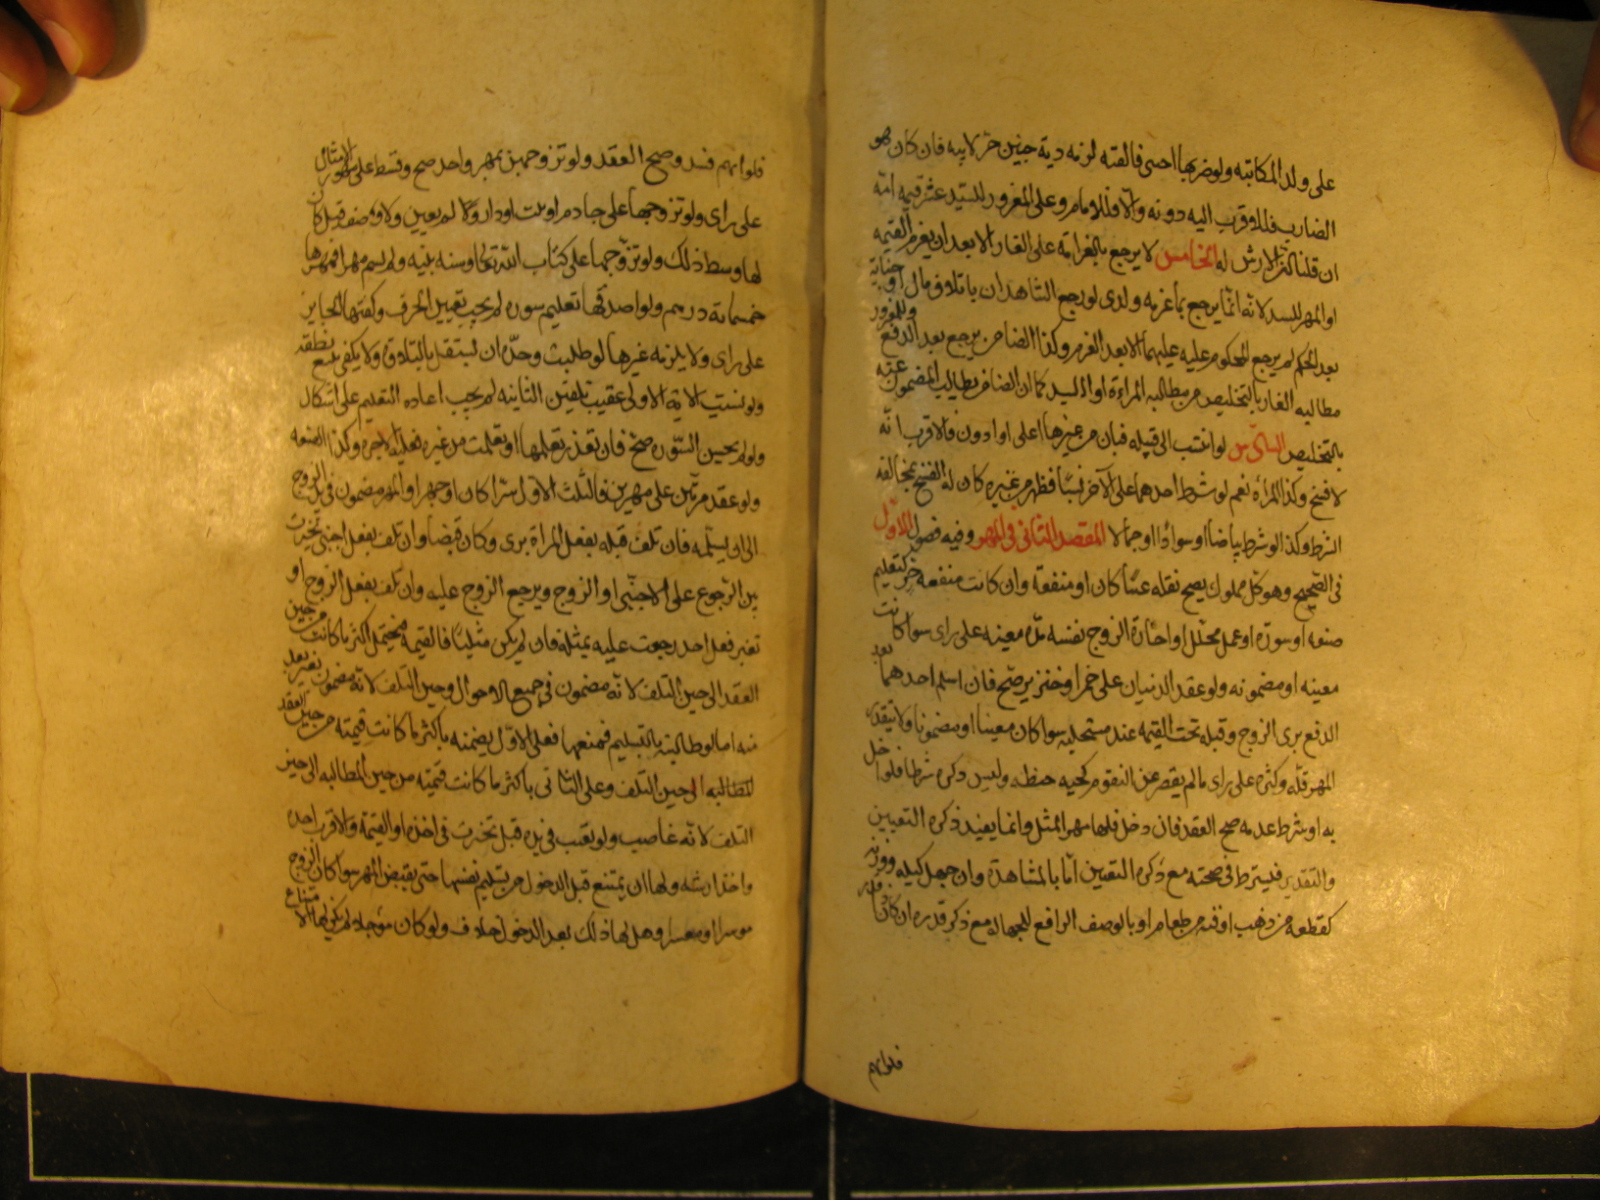 على ولد المكاتبه ولو ضربها اجنبى فالقته لزمه دية جنين حر لابيه فان كان هو
الضارب فللاقرب اليه دونه والا فللامام وعلى المغرور للسيد عشر قيمه امه
ان قلنا الارش له الخامس لا يرجع بالغرامه على الغار الا بعد ان يغرم القيمه
او المهر للسيد لانه انما يرجع بما غرمه ولذى لو رجع الشاهدان باتلاف مال او جنايه
بعد الحكم لم يرجع المحكوم عليه عليهما الا بعد الغرم وكذا الضامن يرجع بعد الدفع وللمغرور
مطالبه الغار بالتخليص من مطالبه المراءة او السيد كما ان الضامن يطالب المضمون عنه
بالتخليص السادس لو انتسب الى قبيله فبان من غيرها اعلى او ادون فالاقرب انه
لا فسخ وكذا المراة نعم لو شرط احدهما على الآخر نسبا فظهر من غيره كان له الفسخ بمخالفه
الشرط وكذا لو شرط بياضا او سوادا او جمالا المقصد الثانى فى المهر وفيه فصول الاول
فى الصحيح وهو كل مملوك يصح نقله عينا كان او منفعة وان كانت منفعه حر كتعليم
صنعه او سورة او عمل محلل او اجارة الزوج نفسه مدة معينه على راى سوا كانت
معينه او مضمونه ولو عقد الذميان على خمر او خنزير صح فان اسلم احدهما بعد
الدفع برى الزوج وقبله تجب القيمه عند مستحليه سوا كان معينا او مضمونا ولا يتقدر
المهر قله وكثرة على راى ما لم يقصر عن التقويم كحبه حنطه وليس ذكره شرطا فلو اخل
به او شرط عدمه صح العقد فان دخل فلها مهر المثل وانما يفيد ذكره التعيين
والتقدير فيشترط فى صحته مع ذكره التعيين اما بالمشاهدة وان جهل كيله ووزنه
كقطعه من ذهب او قبه من طعام او بالوصف الرافع للجهاله مع ذكر قدره ان كان ذا قدر
فلو ابهم
فلو ابهم فسد وصح العقد ولو تزوجهن بمهر واحد صح وقسط على مهور الامثال
على راى ولو تزوجها على خادم او بيت او دار ولم يعين ولا وصف قيل كان
لها وسط ذلك ولو تزوجها على كتاب الله تعالى وسنه نبيه ولم يسم مهرا فمهرها
خمسمائة درهم ولو اصدقها تعليم سوره لم يجب تعيين الحرف ولقنها الجايز
على راى ولا يلزمه غيرها لو طلبت وحده ان تستقل بالتلاوة ولا يكفى تتبع نطقه
ولو نسيت الاية الاولى عقيب تلقين الثانيه لم يجب اعاده التعليم على اشكال
ولو لم يحسن السوره صح فان تعذر تعلمها او تعلمت من غيره فعليه الاجره وكذا الصنعه
ولو عقد مرتين على مهرين فالثابت الاول سرا كان او جهرا والمهر مضمون فى يد الزوج
الى ان يسلمه فان تلف قبله بفعل المراة برى وكان قبضا وان تلف بفعل اجنبى تخيرت
بين الرجوع على الاجنبى او الزوج ويرجع الزوج عليه وان تلف بفعل الزوج او
بغير فعل احد رجعت عليه بمثله فان لم يكن مثليا فالقيمه فيحتمل اكثر ما كانت من حين
العقد الى حين التلف لانه مضمون فى جميع الاحوال وحين التلف لانه مضمون بغير تعد
منه اما لو طالبته بالتسليم فمنعها فعلى الاول يضمنه باكثر ما كانت قيمته من حين العقد
للمطالبه الى حين التلف وعلى الثانى باكثر ما كانت قيمته من حين المطالبه الى حين
التلف لانه غاصب ولو تعيب فى يده قبل تخيرت فى اخذه او القيمة والاقرب اخذه
واخذ ارشه ولها ان يمتنع قبل الدخول من تسليم نفسها حتى يقبض المهر سوا كان الزوج
موسرا او معسرا وهل لها ذلك بعد الدخول خلاف ولو كان موجلا لم يكن لها الامتناع